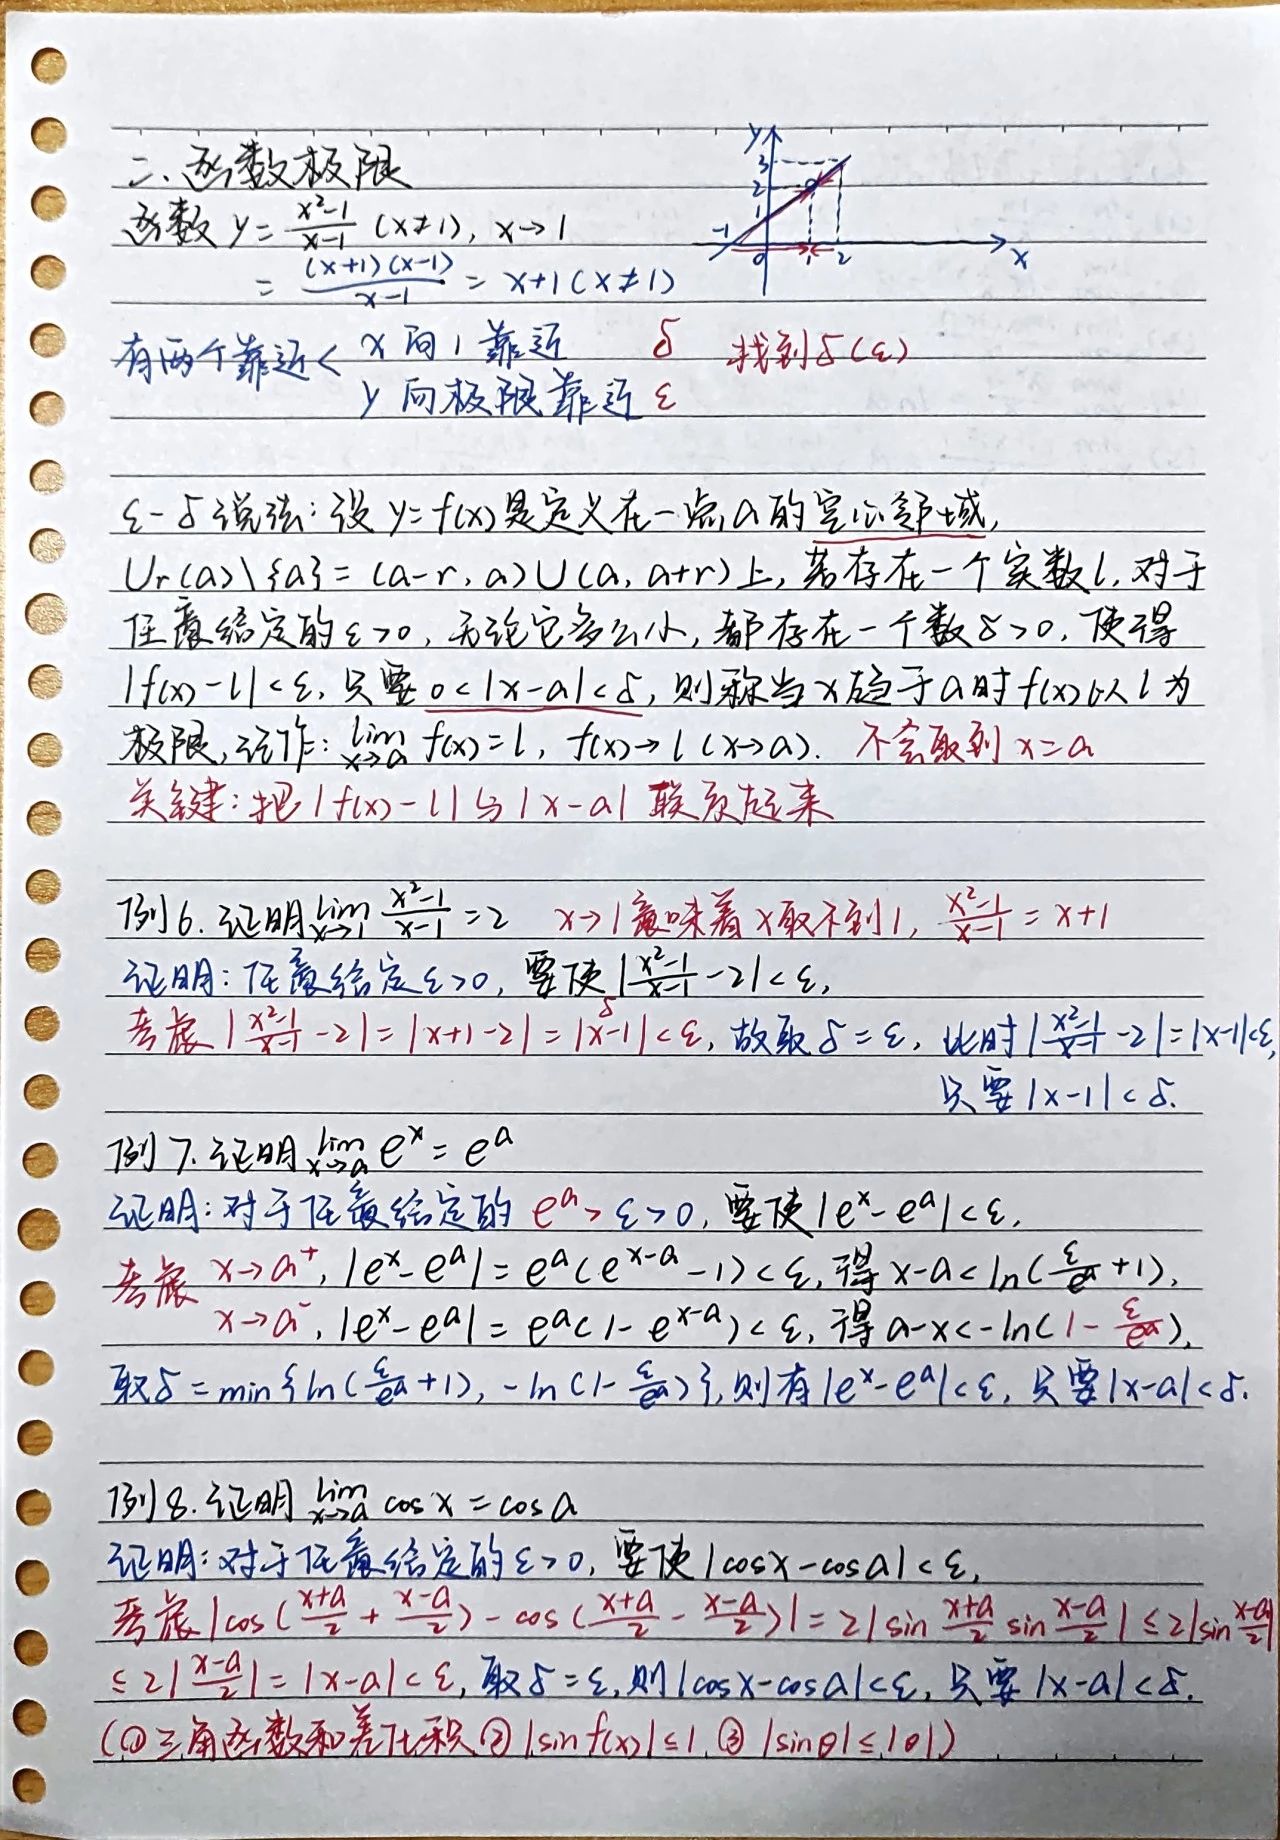 二、函数极限
函数 y = \frac{x²-1}{x-1} (x≠1), x→1
= \frac{(x+1)(x-1)}{x-1} = x+1 (x≠1)
y
3
2
1
-1 0 1 2 x
有两个靠近< x 向 1 靠近 δ 找到δ(ε)
y 向极限靠近 ε
ε-δ说法: 设 y=f(x) 是定义在一点a的空心邻域,
Ur(a)\{a}=(a-r, a)∪(a, a+r)上, 若存在一个实数l, 对于
任意给定的ε>0, 无论它多么小, 都存在一个数δ>0, 使得
|f(x)-l|<ε, 只要 0<|x-a|<δ, 则称当x趋于a时f(x)以l为
极限, 记作: \lim_{x→a} f(x)=l, f(x)→l (x→a). 不会取到 x=a
关键: 把|f(x)-l|与|x-a|联系起来
例6. 证明 \lim_{x→1} \frac{x²-1}{x-1} = 2 x→1意味着x取不到1, \frac{x²-1}{x-1} = x+1
证明: 任意给定ε>0, 要使|\frac{x²-1}{x-1}-2|<ε,
考虑|\frac{x²-1}{x-1}-2|=|x+1-2|=|x-1|<ε, 故取δ=ε, 此时|\frac{x²-1}{x-1}-2|=|x-1|<ε,
δ
只要|x-1|<δ.
例7. 证明 \lim_{x→a} e^x = e^a
证明: 对于任意给定的 e^a>ε>0, 要使|e^x-e^a|<ε,
考虑 x→a⁺, |e^x-e^a|=e^a(e^{x-a}-1)<ε, 得 x-a<ln(\frac{ε}{e^a}+1),
x→a⁻, |e^x-e^a|=e^a(1-e^{x-a})<ε, 得 a-x<-ln(1-\frac{ε}{e^a}),
取δ=min{ln(\frac{ε}{e^a}+1), -ln(1-\frac{ε}{e^a})}, 则有|e^x-e^a|<ε, 只要|x-a|<δ.
例8. 证明 \lim_{x→a} cos x = cos a
证明: 对于任意给定的ε>0, 要使|cosx-cosa|<ε,
考虑|cos(\frac{x+a}{2}+\frac{x-a}{2})-cos(\frac{x+a}{2}-\frac{x-a}{2})|=2|sin\frac{x+a}{2} sin\frac{x-a}{2}|≤2|sin\frac{x-a}{2}|
≤2|\frac{x-a}{2}|=|x-a|<ε, 取δ=ε, 则|cosx-cosa|<ε, 只要|x-a|<δ.
(①三角函数和差化积 ②|sin f(x)|≤1 ③|sinθ|≤|θ|)